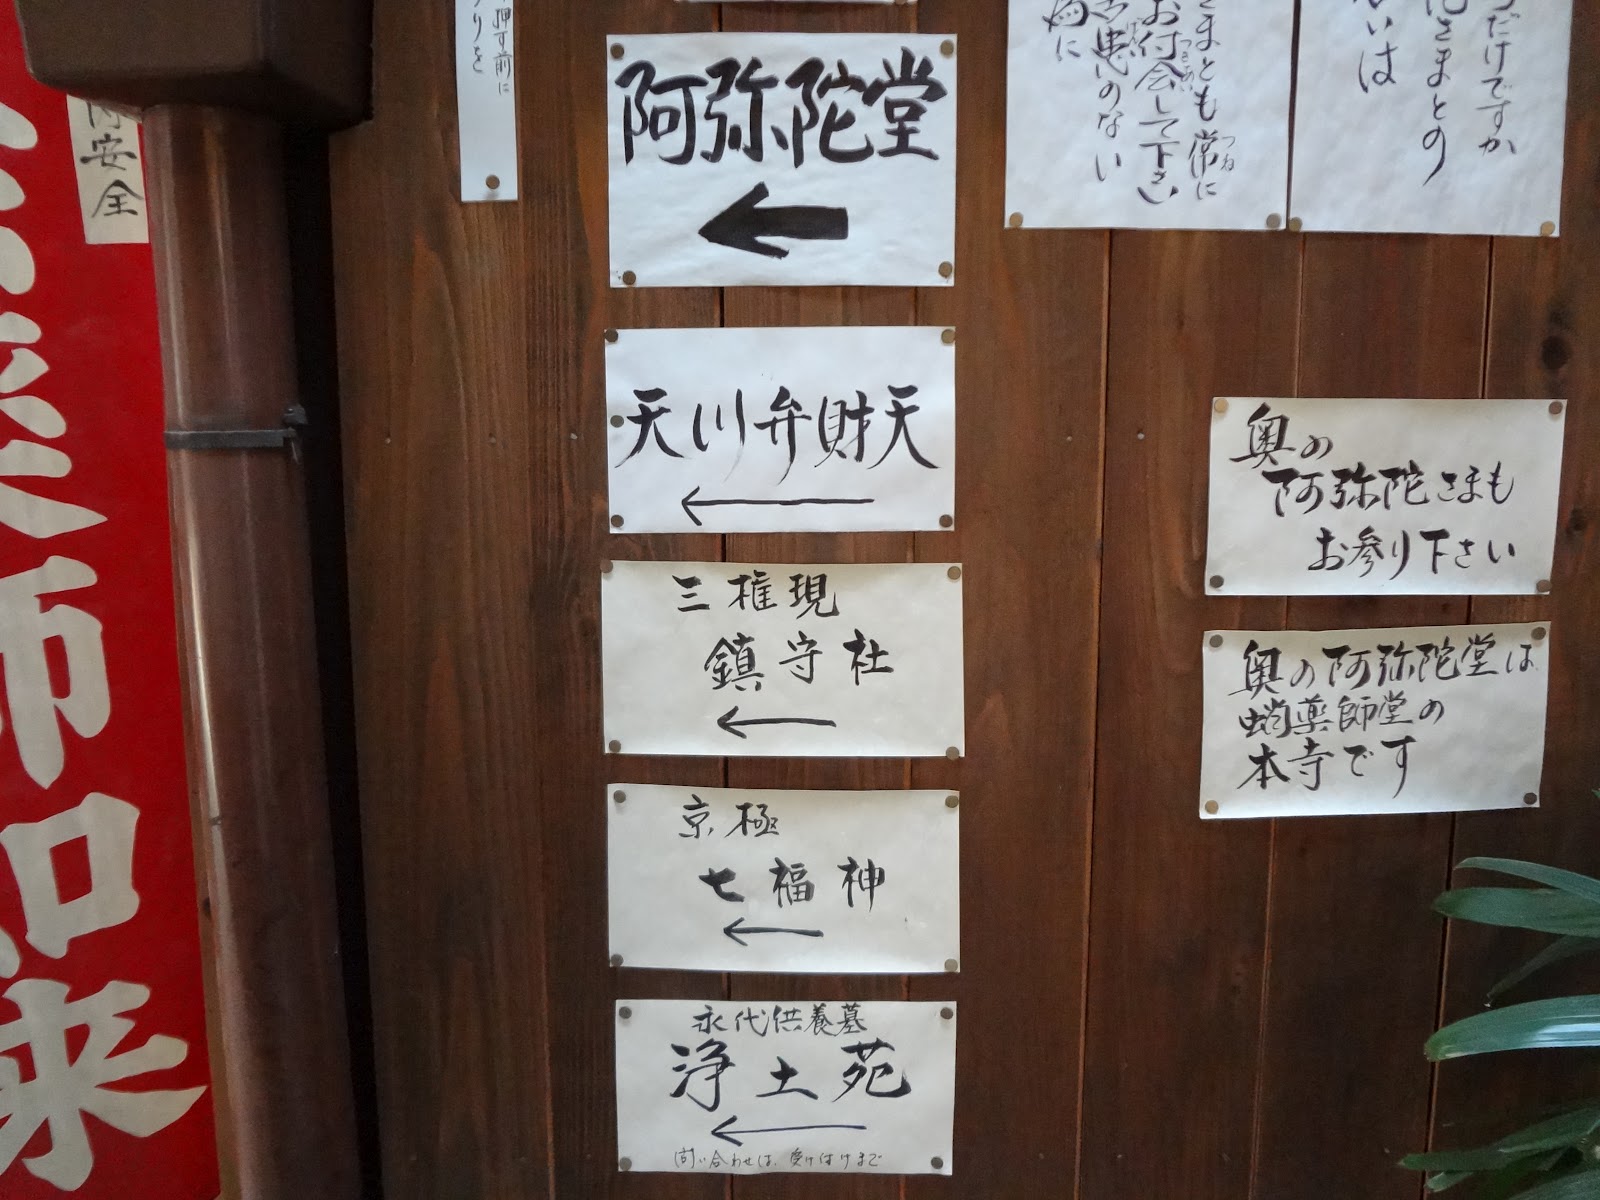 押す前に
内安全
師如来
阿弥陀堂
天川弁財天
三権現
鎮守社
京極
七福神
永代供養墓
浄土苑
問い合わせは、受け付けまで
だけですか
さまとの
いは
さまとも常に
つね
お付会して下さい
つきあい
患いのない
為に
奥の
阿弥陀さまも
お参り下さい
奥の阿弥陀堂は
蛸薬師堂の
本寺です